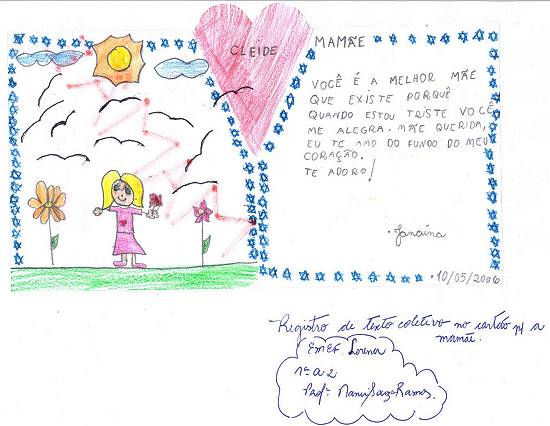 CLEIDE
MAMÃE
VOCÊ É A MELHOR MÃE
QUE EXISTE PORQUÊ
QUANDO ESTOU TRISTE VOCÊ
ME ALEGRA. MÃE QUERIDA,
EU TE AMO DO FUNDO DO MEU
CORAÇÃO.
TE ADORO!
Janaína
10/05/2006
Registro de texto coletivo no cartão p/ a
mamãe.
EMEF. Lorena
1º a 2
Profª.